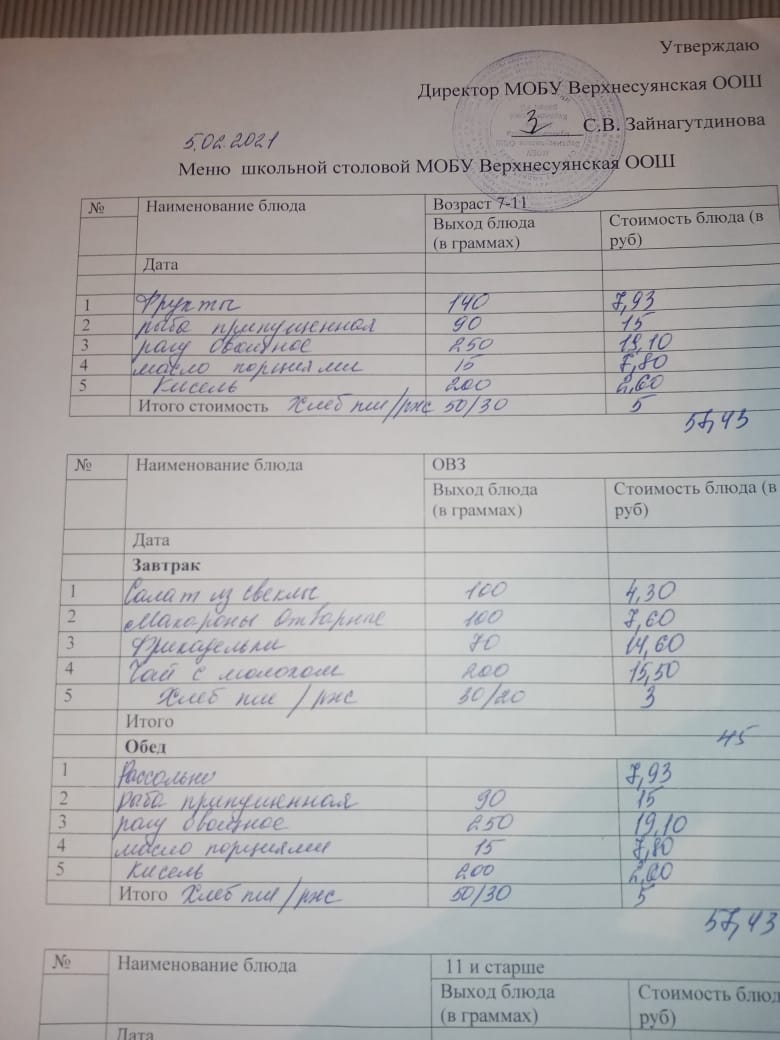 Утверждаю
Директор МОБУ Верхнесуянская ООШ
С.В. Зайнагутдинова
5.02.2021
Меню школьной столовой МОБУ Верхнесуянская ООШ
№ Наименование блюда Возраст 7-11
Выход блюда (в граммах) Стоимость блюда (в руб)
Дата
1 Фрукты 140 7,93
2 рыба припущенная 90 15
3 рагу овощное 250 19,10
4 масло порциями 15 7,80
5 Кисель 200 2,60
Итого стоимость Хлеб пш/рж 50/30 5
57,43
№ Наименование блюда ОВЗ
Выход блюда (в граммах) Стоимость блюда (в руб)
Дата
Завтрак
1 Салат из свеклы 100 4,30
2 Макароны отварные 100 7,60
3 Фрикадельки 70 14,60
4 Чай с молоком 200 15,50
5 Хлеб пш/рж 30/20 3
Итого
45
Обед
1 Рассольник 7,93
2 рыба припущенная 90 15
3 рагу овощное 250 19,10
4 масло порциями 15 7,80
5 Кисель 200 2,60
Итого Хлеб пш/рж 50/30 5
57,43
№ Наименование блюда 11 и старше
Выход блюда (в граммах) Стоимость блюд руб)
Дата